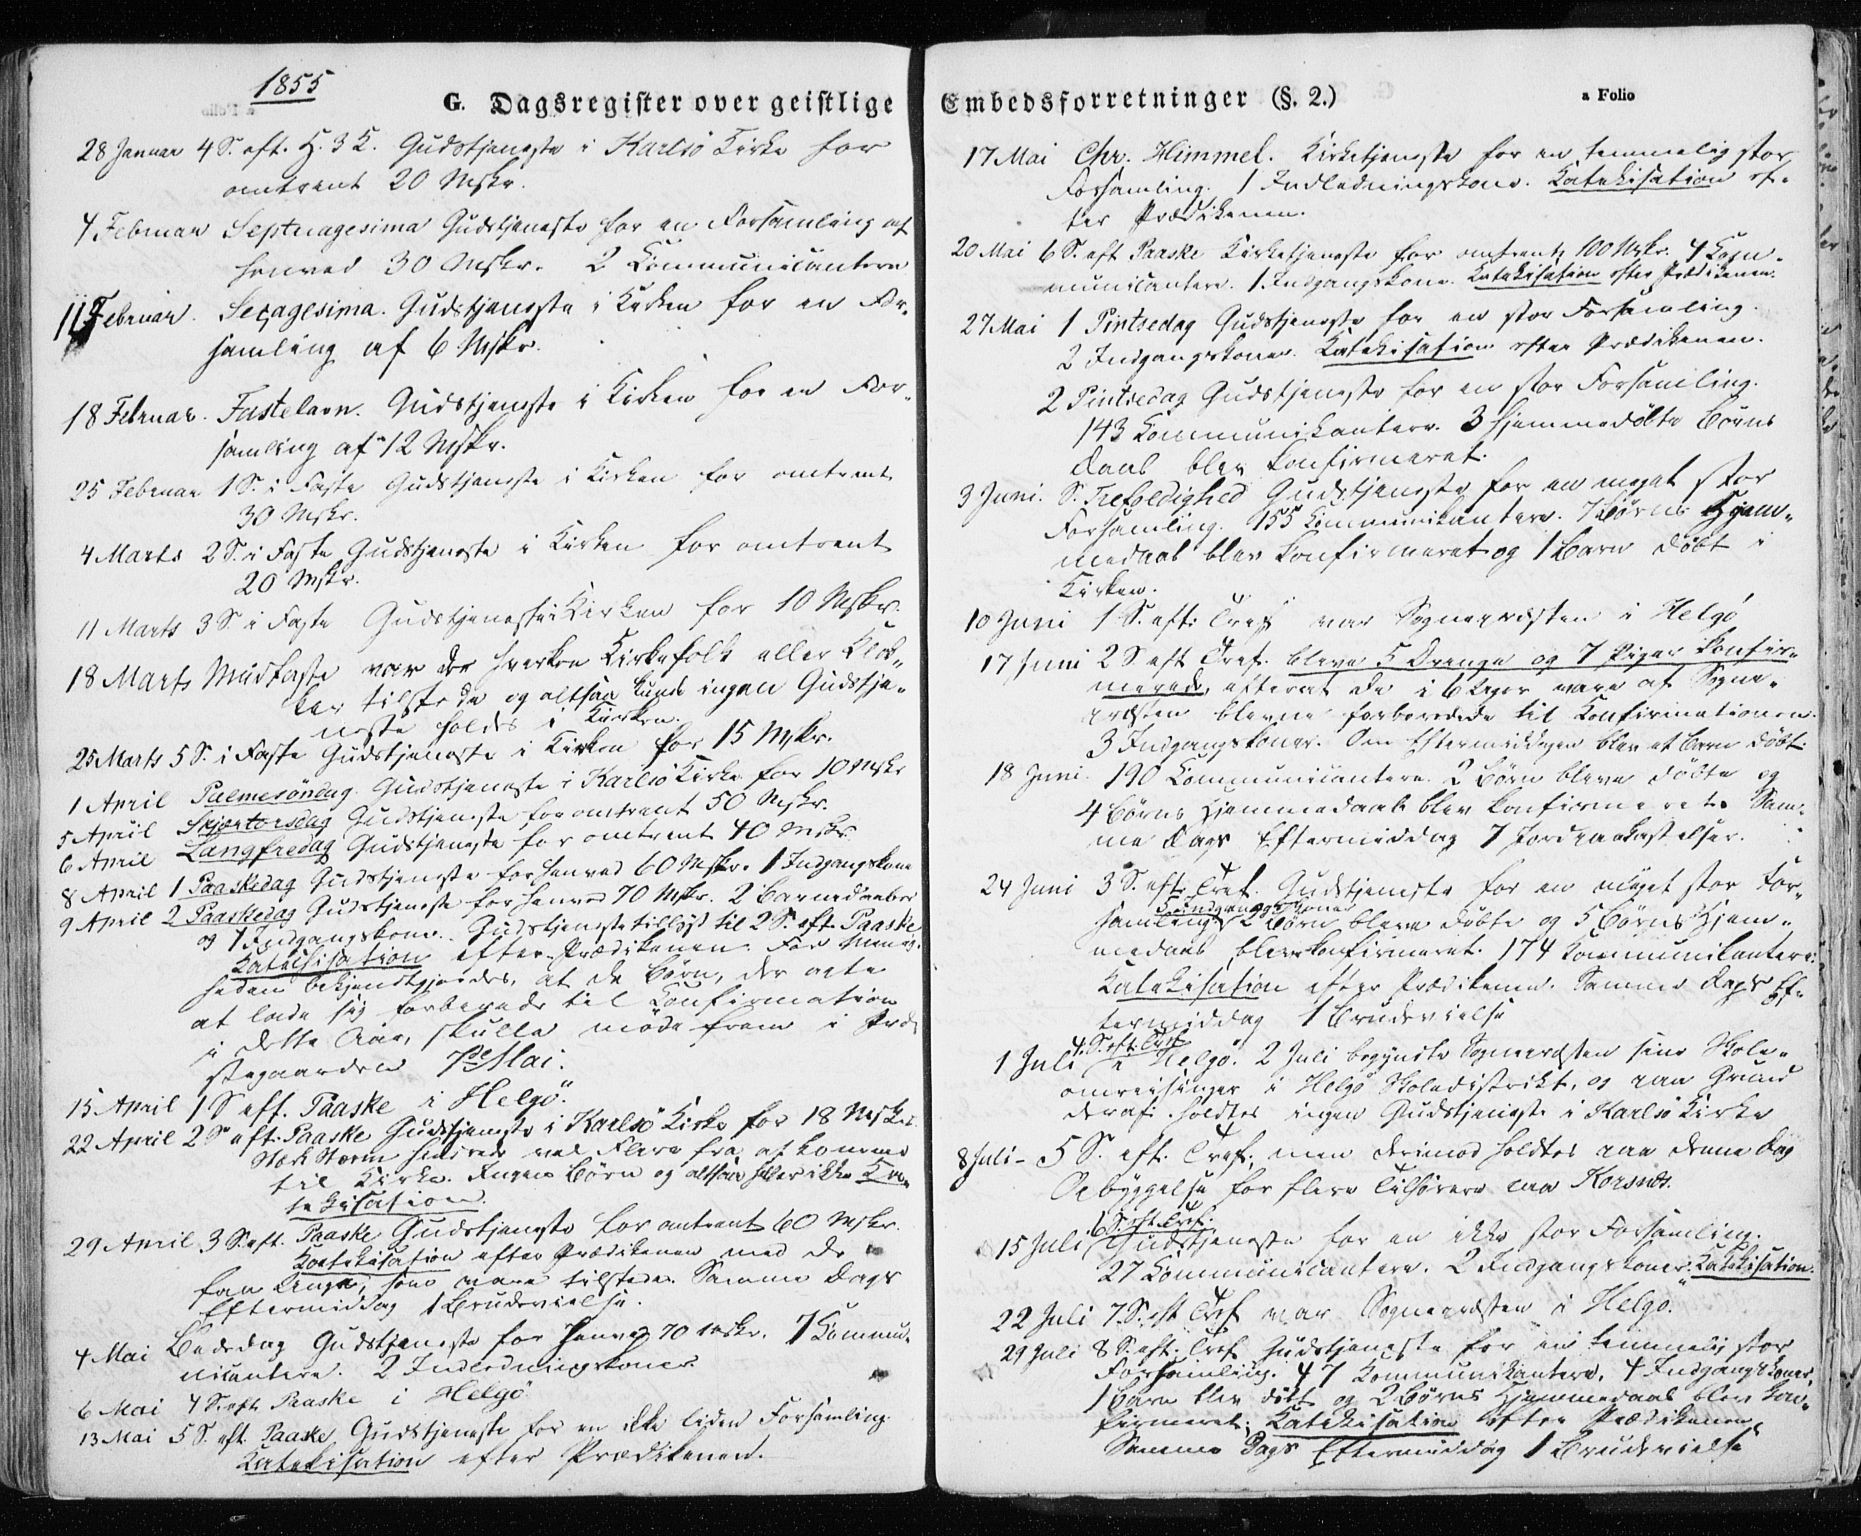 1855
G. Dagsregister over geistlige
28 Januar 4 S. eft. H. 3 K. Gudstjeneste i Karlsö Kirke for
omtrent 20 Mskr.
4 Februar Septuagesima Gudstjeneste for en Forsamling af
henved 30 Mskr. 2 Communicantere
11 Februar. Sexagesima. Gudstjeneste i Kirken for en For-
samling af 6 Mskr.
18 Februar. Fastelavn. Gudstjeneste i Kirken for en For-
samling af 12 Mskr.
25 Februar 1 S. i Faste Gudstjeneste i Kirken for omtrent
30 Mskr.
4 Marts 2 S. i Faste Gudstjeneste i Kirken for omtrent
20 Mskr.
11 Marts 3 S. i Faste Gudstjeneste i Kirken for 10 Mskr.
18 Marts Midfaste var der hverken Kirkefolk eller Klok-
ker tilstede og altsaa kunde ingen Gudstje-
neste holdes i Kirken.
25 Marts 5 S. i Faste Gudstjeneste i Kirken for 15 Mskr.
1 April Palmesöndag. Gudstjeneste i Karlsö Kirke for 10 Mskr
5 April Skjærtorsdag Gudstjeneste for omtrent 50 Mskr.
6 April Langfredag Gudstjeneste for omtrent 40 Mskr.
8 April 1 Paaskedag Gudstjeneste for henved 60 Mskr. 1 Indgangskone
9 April 2 Paaskedag Gudstjeneste for henved 70 Mskr. 2 Barnedaaber
og 1 Indgangskone. Gudstjeneste tillyst til 2 S. eft. Paaske
Katechisation efter Prædikenen. For Menig-
heden bekjendtgjordes, at de Börn, der agte
at lade sig forberede til Confirmation
i dette Aar, skulle möde frem i Præ-
stegaarden 7de Mai.
15 April 1 S eft. Paaske i Helgö.
22 April 2 S eft. Paaske Gudstjeneste i Karlsö Kirke for 18 Mskr.
Stærk Storm hindrede vel Flere fra at komme
til Kirke. Ingen Börn og altsaa heller ikke Ka-
tekisation.
29 April 3 S. eft. Paaske Gudstjeneste for omtrent 60 Mskr.
Katekisation efter Prædikenen med de
faa Unge, som vare tilstede. Samme Dags
Eftermiddag 1 Brudevielse.
4 Mai Bededag Gudstjeneste for henved 70 Mskr. 7 Commu-
nicantere. 2 Indledningskoner
6 Mai 4 S. eft. Paaske i Helgö
13 Mai 5 S. eft. Paaske Gudstjeneste for en ikke liden Forsamling
Katekisation efter Prædikenen.
Embedsforretninger (§. 2.)
a Folio
17 Mai Chr. Himmel. Kirketjeneste for en temmelig stor
Forsamling. 1 Indledningskone. Katekisation ef-
ter Prædikenen.
20 Mai 6 S. eft Paaske Kirketjeneste for omtrent 100 Mskr. 4 Com-
municantere. 1 Indgangskone. Katekisation efter Prædikenen.
27 Mai 1 Pintsedag Gudstjeneste for en stor Forsamling.
2 Indgangskoner. Katekisation efter Prædikenen.
2 Pintsedag Gudstjeneste for en stor Forsamling.
143 Kommunikantere. 3 hjemmedöbte Börns
Daab blev konfirmeret.
3 Juni. S. Trefoldighed Gudstjeneste for en meget stor
Forsamling. 155 Kommunikantere. 7 Börns Hjem-
medaab blev konfirmeret og 1 Barn döbt i
Kirken.
10 Juni 1 S. eft. Tref var Sognepræsten i Helgö
17 Juni 2 S eft Tref. bleve 5 Drenge og 7 Piger konfir-
merede, efterat de i 6 Uger vare af Sogne-
præsten blevne forberedede til Konfirmationen.
3 Indgangskoner. Om Eftermiddagen blev et Barn döbt.
18 Juni. 190 Communicantere. 2 Börn bleve döbte og
4 Börns Hjemmedaab blev konfirmeret. Sam-
me Dags Eftermiddag 7 Jordpaakastelser.
24 Juni 3 S. eft. Tref. Gudstjeneste for en meget stor For-
5 Indgangskoner
samling. 2 Börn bleve döbte og 5 Börns Hjem-
medaab blev konfirmeret. 174 Kommunikantere.
Katekisation efter Prædikenen. Samme Dags Ef-
termiddag 1 Brudevielse
4. S. eft. Tref
1 Juli i Helgö. 2 Juli begyndte Sognepræsten sine Skole-
omreisinger i Helgö Skoledistrikt, og paa Grund
deraf holdtes ingen Gudstjeneste i Karlsö Kirke
8 Juli - 5 S. eft. Tref; men derimod holdtes paa denne Dag
Opbyggelse for flere Tilhörere paa Korsnes.
6 S. eft Tref.
15 Juli Gudstjeneste for en ikke stor Forsamling.
27 Communicantere. 2 Indgangskoner. Katekisation.
22 Juli 7. S. eft Tref var Sognepræsten i Helgö.
29 Juli 8 S. eft. Tref Gudstjeneste for en temmelig stor
Forsamling. 47 Kommunikantere. 4 Indgangskoner.
1 Barn blev döbt og 2 Börns Hjemmedaab blev kon-
firmeret. Katekisation efter Prædikenen
Samme Dags Eftermiddag 1 Brudevielse